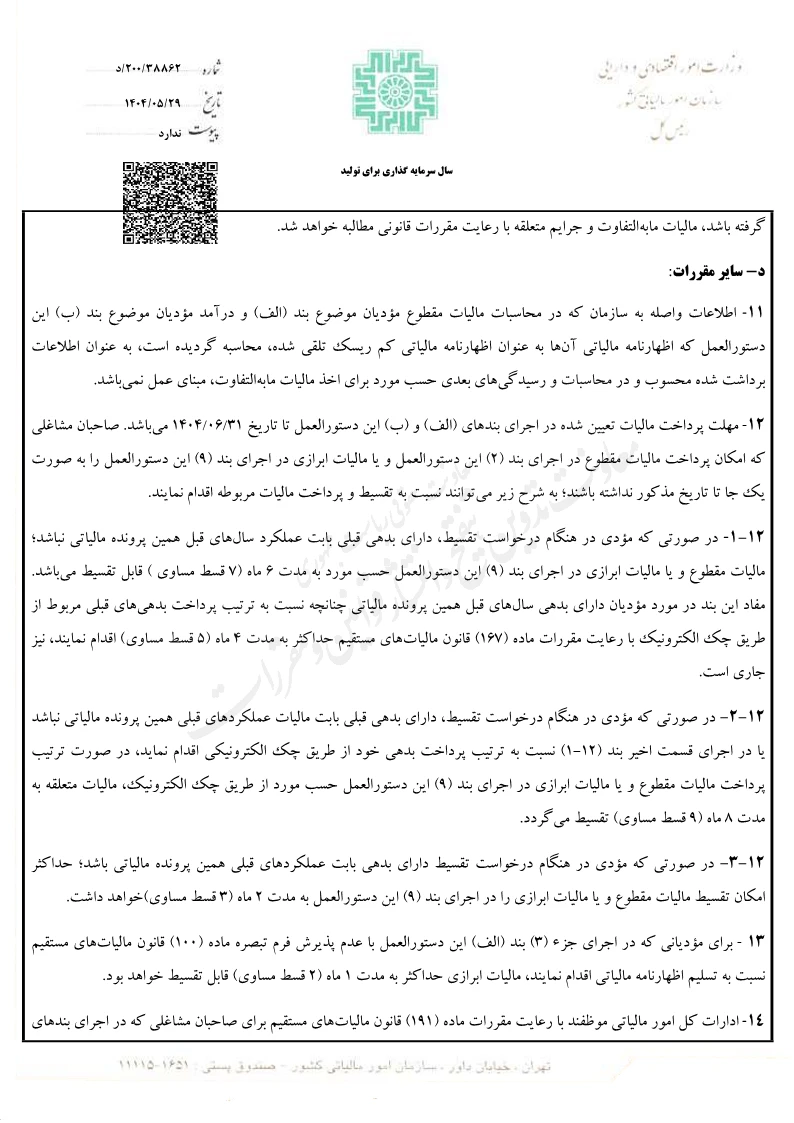 وزارت امور اقتصادی و دارایی
سازمان امور مالیاتی کشور
رئیس کل
شماره ۲۰۰/۳۸۸۶۲/د
تاریخ ۱۴۰۴/۰۵/۲۹
پیوست ندارد
سال سرمایه گذاری برای تولید
گرفته باشد، مالیات مابه‌التفاوت و جرایم متعلقه با رعایت مقررات قانونی مطالبه خواهد شد.
د– سایر مقررات:
۱۱- اطلاعات واصله به سازمان که در محاسبات مالیات مقطوع مؤدیان موضوع بند (الف) و درآمد مؤدیان موضوع بند (ب) این
دستورالعمل که اظهارنامه مالیاتی آن‌ها به عنوان اظهارنامه مالیاتی کم ریسک تلقی شده، محاسبه گردیده است، به عنوان اطلاعات
برداشت شده محسوب و در محاسبات و رسیدگی‌های بعدی حسب مورد برای اخذ مالیات مابه‌التفاوت، مبنای عمل نمی‌باشد.
۱۲- مهلت پرداخت مالیات تعیین شده در اجرای بندهای (الف) و (ب) این دستورالعمل تا تاریخ ۱۴۰۴/۰۶/۳۱ می‌باشد. صاحبان مشاغلی
که امکان پرداخت مالیات مقطوع در اجرای بند (۲) این دستورالعمل و یا مالیات ابرازی در اجرای بند (۹) این دستورالعمل را به صورت
یک جا تا تاریخ مذکور نداشته باشند؛ به شرح زیر می‌توانند نسبت به تقسیط و پرداخت مالیات مربوطه اقدام نمایند.
۱۲-۱- در صورتی که مؤدی در هنگام درخواست تقسیط، دارای بدهی قبلی بابت عملکرد سال‌های قبل همین پرونده مالیاتی نباشد؛
مالیات مقطوع و یا مالیات ابرازی در اجرای بند (۹) این دستورالعمل حسب مورد به مدت ۶ ماه (۷ قسط مساوی ) قابل تقسیط می‌باشد.
مفاد این بند در مورد مؤدیان دارای بدهی سال‌های قبل همین پرونده مالیاتی چنانچه نسبت به ترتیب پرداخت بدهی‌های قبلی مربوط از
طریق چک الکترونیک با رعایت مقررات ماده (۱۶۷) قانون مالیات‌های مستقیم حداکثر به مدت ۴ ماه (۵ قسط مساوی) اقدام نمایند، نیز
جاری است.
۱۲-۲- در صورتی که مؤدی در هنگام درخواست تقسیط، دارای بدهی قبلی بابت مالیات عملکردهای قبلی همین پرونده مالیاتی نباشد
یا در اجرای قسمت اخیر بند (۱۲-۱) نسبت به ترتیب پرداخت بدهی خود از طریق چک الکترونیکی اقدام نماید، در صورت ترتیب
پرداخت مالیات مقطوع و یا مالیات ابرازی در اجرای بند (۹) این دستورالعمل حسب مورد از طریق چک الکترونیک، مالیات متعلقه به
مدت ۸ ماه (۹ قسط مساوی) تقسیط می‌گردد.
۱۲-۳- در صورتی که مؤدی در هنگام درخواست تقسیط دارای بدهی بابت عملکردهای قبلی همین پرونده مالیاتی باشد؛ حداکثر
امکان تقسیط مالیات مقطوع و یا مالیات ابرازی را در اجرای بند (۹) این دستورالعمل به مدت ۲ ماه (۳ قسط مساوی)خواهد داشت.
۱۳ - برای مؤدیانی که در اجرای جزء (۳) بند (الف) این دستورالعمل با عدم پذیرش فرم تبصره ماده (۱۰۰) قانون مالیات‌های مستقیم
نسبت به تسلیم اظهارنامه مالیاتی اقدام نمایند، مالیات ابرازی حداکثر به مدت ۱ ماه (۲ قسط مساوی) قابل تقسیط خواهد بود.
۱۴- ادارات کل امور مالیاتی موظفند با رعایت مقررات ماده (۱۹۱) قانون مالیات‌های مستقیم برای صاحبان مشاغلی که در اجرای بندهای
تهران ، خیابان داور ، سازمان امور مالیاتی کشور - صندوق پستی : ۱۶۵۱-۱۱۱۱۵